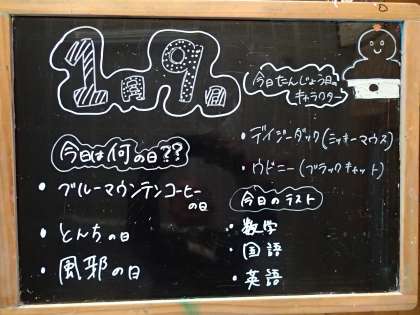 1月9日
今日たんじょう日の
キャラクター
今日は何の日??
・ブルーマウンテンコーヒー
の日
・とんちの日
・風邪の日
・デイジーダック(ミッキーマウス)
・ウドニー(ブラックキャット)
今日のテスト
・数学
・国語
・英語